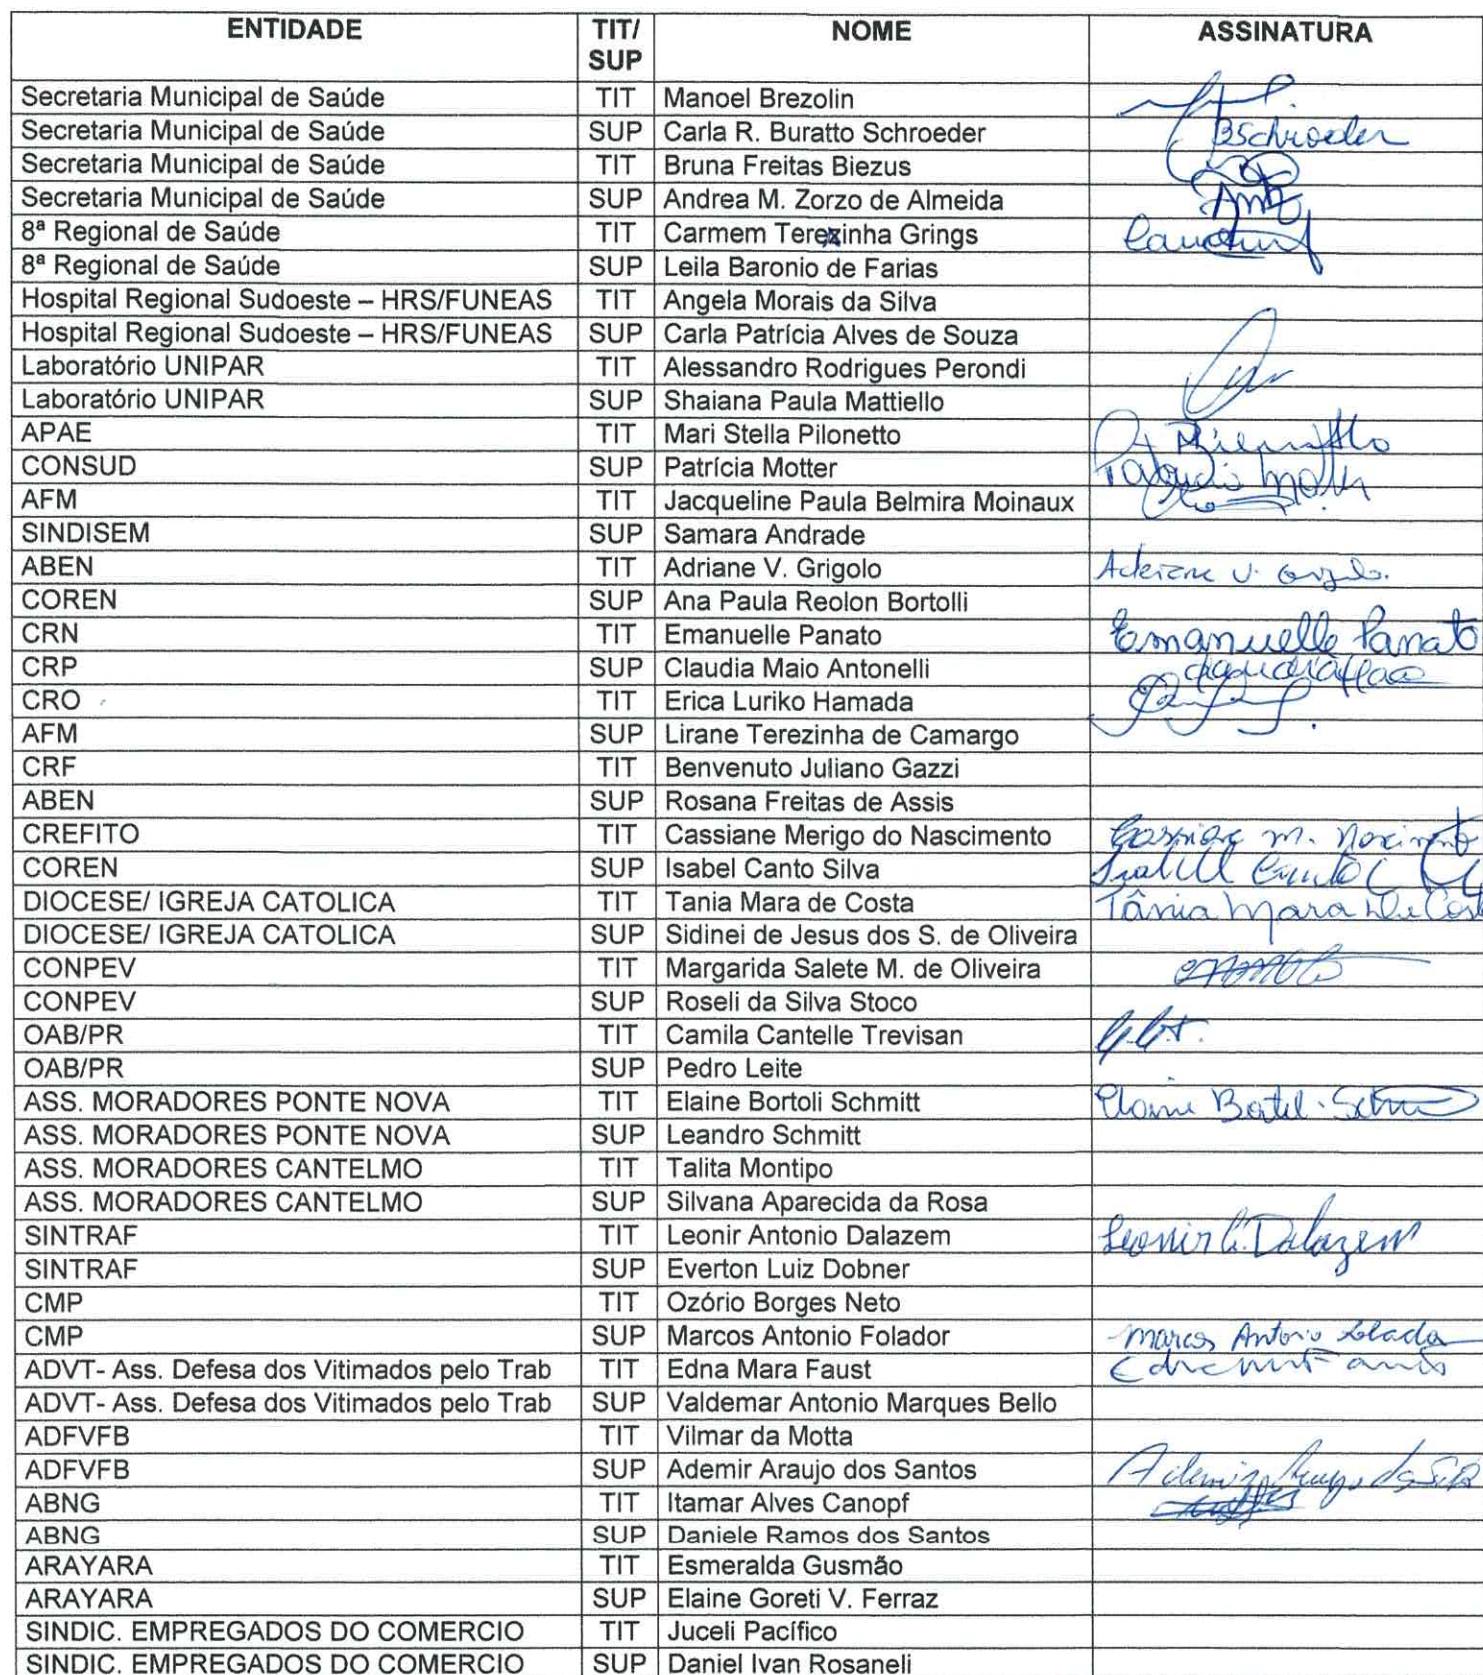 ENTIDADE TIT/ SUP NOME ASSINATURA
Secretaria Municipal de Saúde TIT Manoel Brezolin
Secretaria Municipal de Saúde SUP Carla R. Buratto Schroeder BSchroeder
Secretaria Municipal de Saúde TIT Bruna Freitas Biezus
Secretaria Municipal de Saúde SUP Andrea M. Zorzo de Almeida
8ª Regional de Saúde TIT Carmem Terezinha Grings
8ª Regional de Saúde SUP Leila Baronio de Farias
Hospital Regional Sudoeste – HRS/FUNEAS TIT Angela Morais da Silva
Hospital Regional Sudoeste – HRS/FUNEAS SUP Carla Patrícia Alves de Souza
Laboratório UNIPAR TIT Alessandro Rodrigues Perondi
Laboratório UNIPAR SUP Shaiana Paula Mattiello
APAE TIT Mari Stella Pilonetto
CONSUD SUP Patrícia Motter Patrícia Motter
AFM TIT Jacqueline Paula Belmira Moinaux
SINDISEM SUP Samara Andrade
ABEN TIT Adriane V. Grigolo Adriane V. Grigolo.
COREN SUP Ana Paula Reolon Bortolli
CRN TIT Emanuelle Panato Emanuelle Panato
CRP SUP Claudia Maio Antonelli
CRO TIT Erica Luriko Hamada
AFM SUP Lirane Terezinha de Camargo
CRF TIT Benvenuto Juliano Gazzi
ABEN SUP Rosana Freitas de Assis
CREFITO TIT Cassiane Merigo do Nascimento Cassiane M. Nascimento
COREN SUP Isabel Canto Silva
DIOCESE/ IGREJA CATOLICA TIT Tania Mara de Costa Tânia Mara De Costa
DIOCESE/ IGREJA CATOLICA SUP Sidinei de Jesus dos S. de Oliveira
CONPEV TIT Margarida Salete M. de Oliveira
CONPEV SUP Roseli da Silva Stoco
OAB/PR TIT Camila Cantelle Trevisan
OAB/PR SUP Pedro Leite
ASS. MORADORES PONTE NOVA TIT Elaine Bortoli Schmitt
ASS. MORADORES PONTE NOVA SUP Leandro Schmitt
ASS. MORADORES CANTELMO TIT Talita Montipo
ASS. MORADORES CANTELMO SUP Silvana Aparecida da Rosa
SINTRAF TIT Leonir Antonio Dalazem Leonir A. Dalazem
SINTRAF SUP Everton Luiz Dobner
CMP TIT Ozório Borges Neto
CMP SUP Marcos Antonio Folador Marcos Antonio Folador
ADVT- Ass. Defesa dos Vitimados pelo Trab TIT Edna Mara Faust
ADVT- Ass. Defesa dos Vitimados pelo Trab SUP Valdemar Antonio Marques Bello
ADFVFB TIT Vilmar da Motta
ADFVFB SUP Ademir Araujo dos Santos Ademir Araujo
ABNG TIT Itamar Alves Canopf
ABNG SUP Daniele Ramos dos Santos
ARAYARA TIT Esmeralda Gusmão
ARAYARA SUP Elaine Goreti V. Ferraz
SINDIC. EMPREGADOS DO COMERCIO TIT Juceli Pacífico
SINDIC. EMPREGADOS DO COMERCIO SUP Daniel Ivan Rosaneli